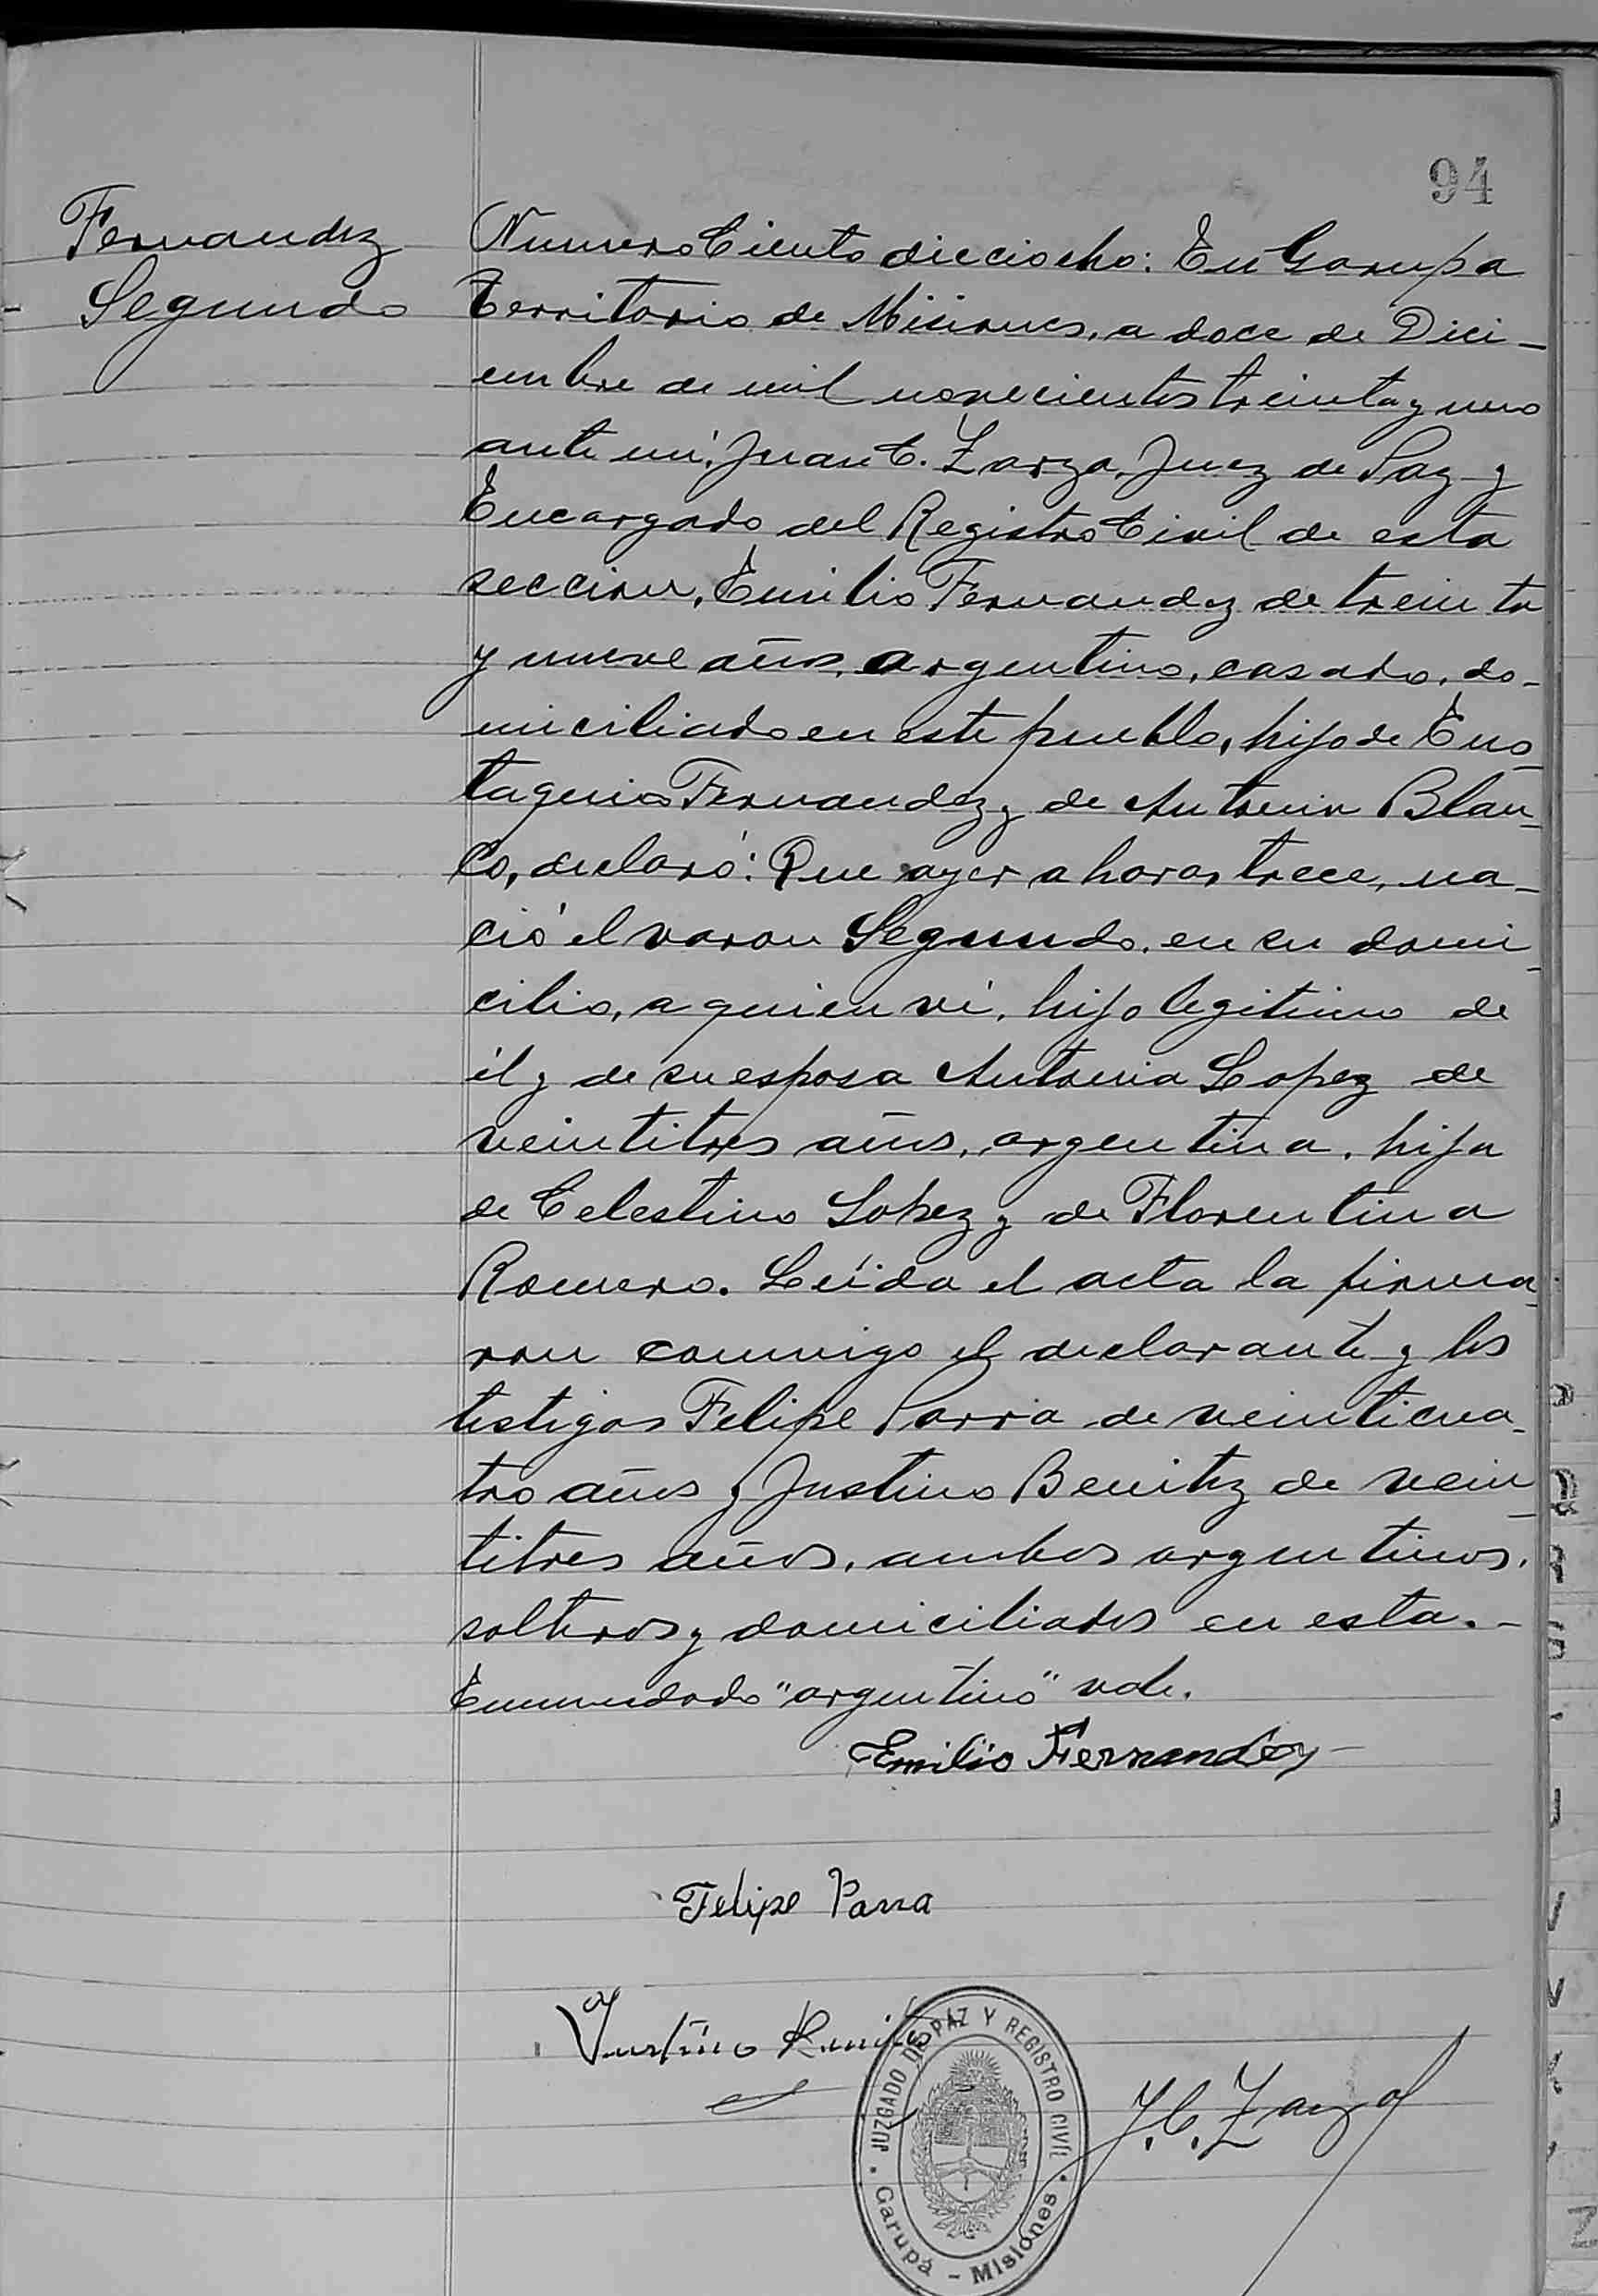 94
Fernandez
Segundo
Numero Ciento dieciocho: En Garupa
Territorio de Misiones, a doce de Dici-
embre de mil novecientos treinta y uno
ante mi, Juan C. Zarza, Juez de Paz y
Encargado del Registro Civil de esta
seccion, Emilio Fernandez de treinta
y nueve años, argentino, casado, do-
miciliado en este pueblo, hijo de Eus-
taquio Fernandez y de Antonia Blan-
co, declaró: Que ayer a horas trece, na-
ció el varon Segundo, en su domi-
cilio, a quien vi, hijo legitimo de
él y de su esposa Antonia Lopez de
veintitres años, argentina, hija
de Celestino Lopez y de Florentina
Romero. Leída el acta la firma-
ron conmigo el declarante y los
testigos Felipe Parra de veinticua-
tro años y Justino Benitez de vein-
titres años, ambos argentinos,
solteros y domiciliados en esta.-
Enmendado "argentino" vale.
Emilio Fernandez
Felipe Parra
Justino Benitez
JUZGADO DE PAZ Y REGISTRO CIVIL
Garupá - Misiones
J.C. Zarza